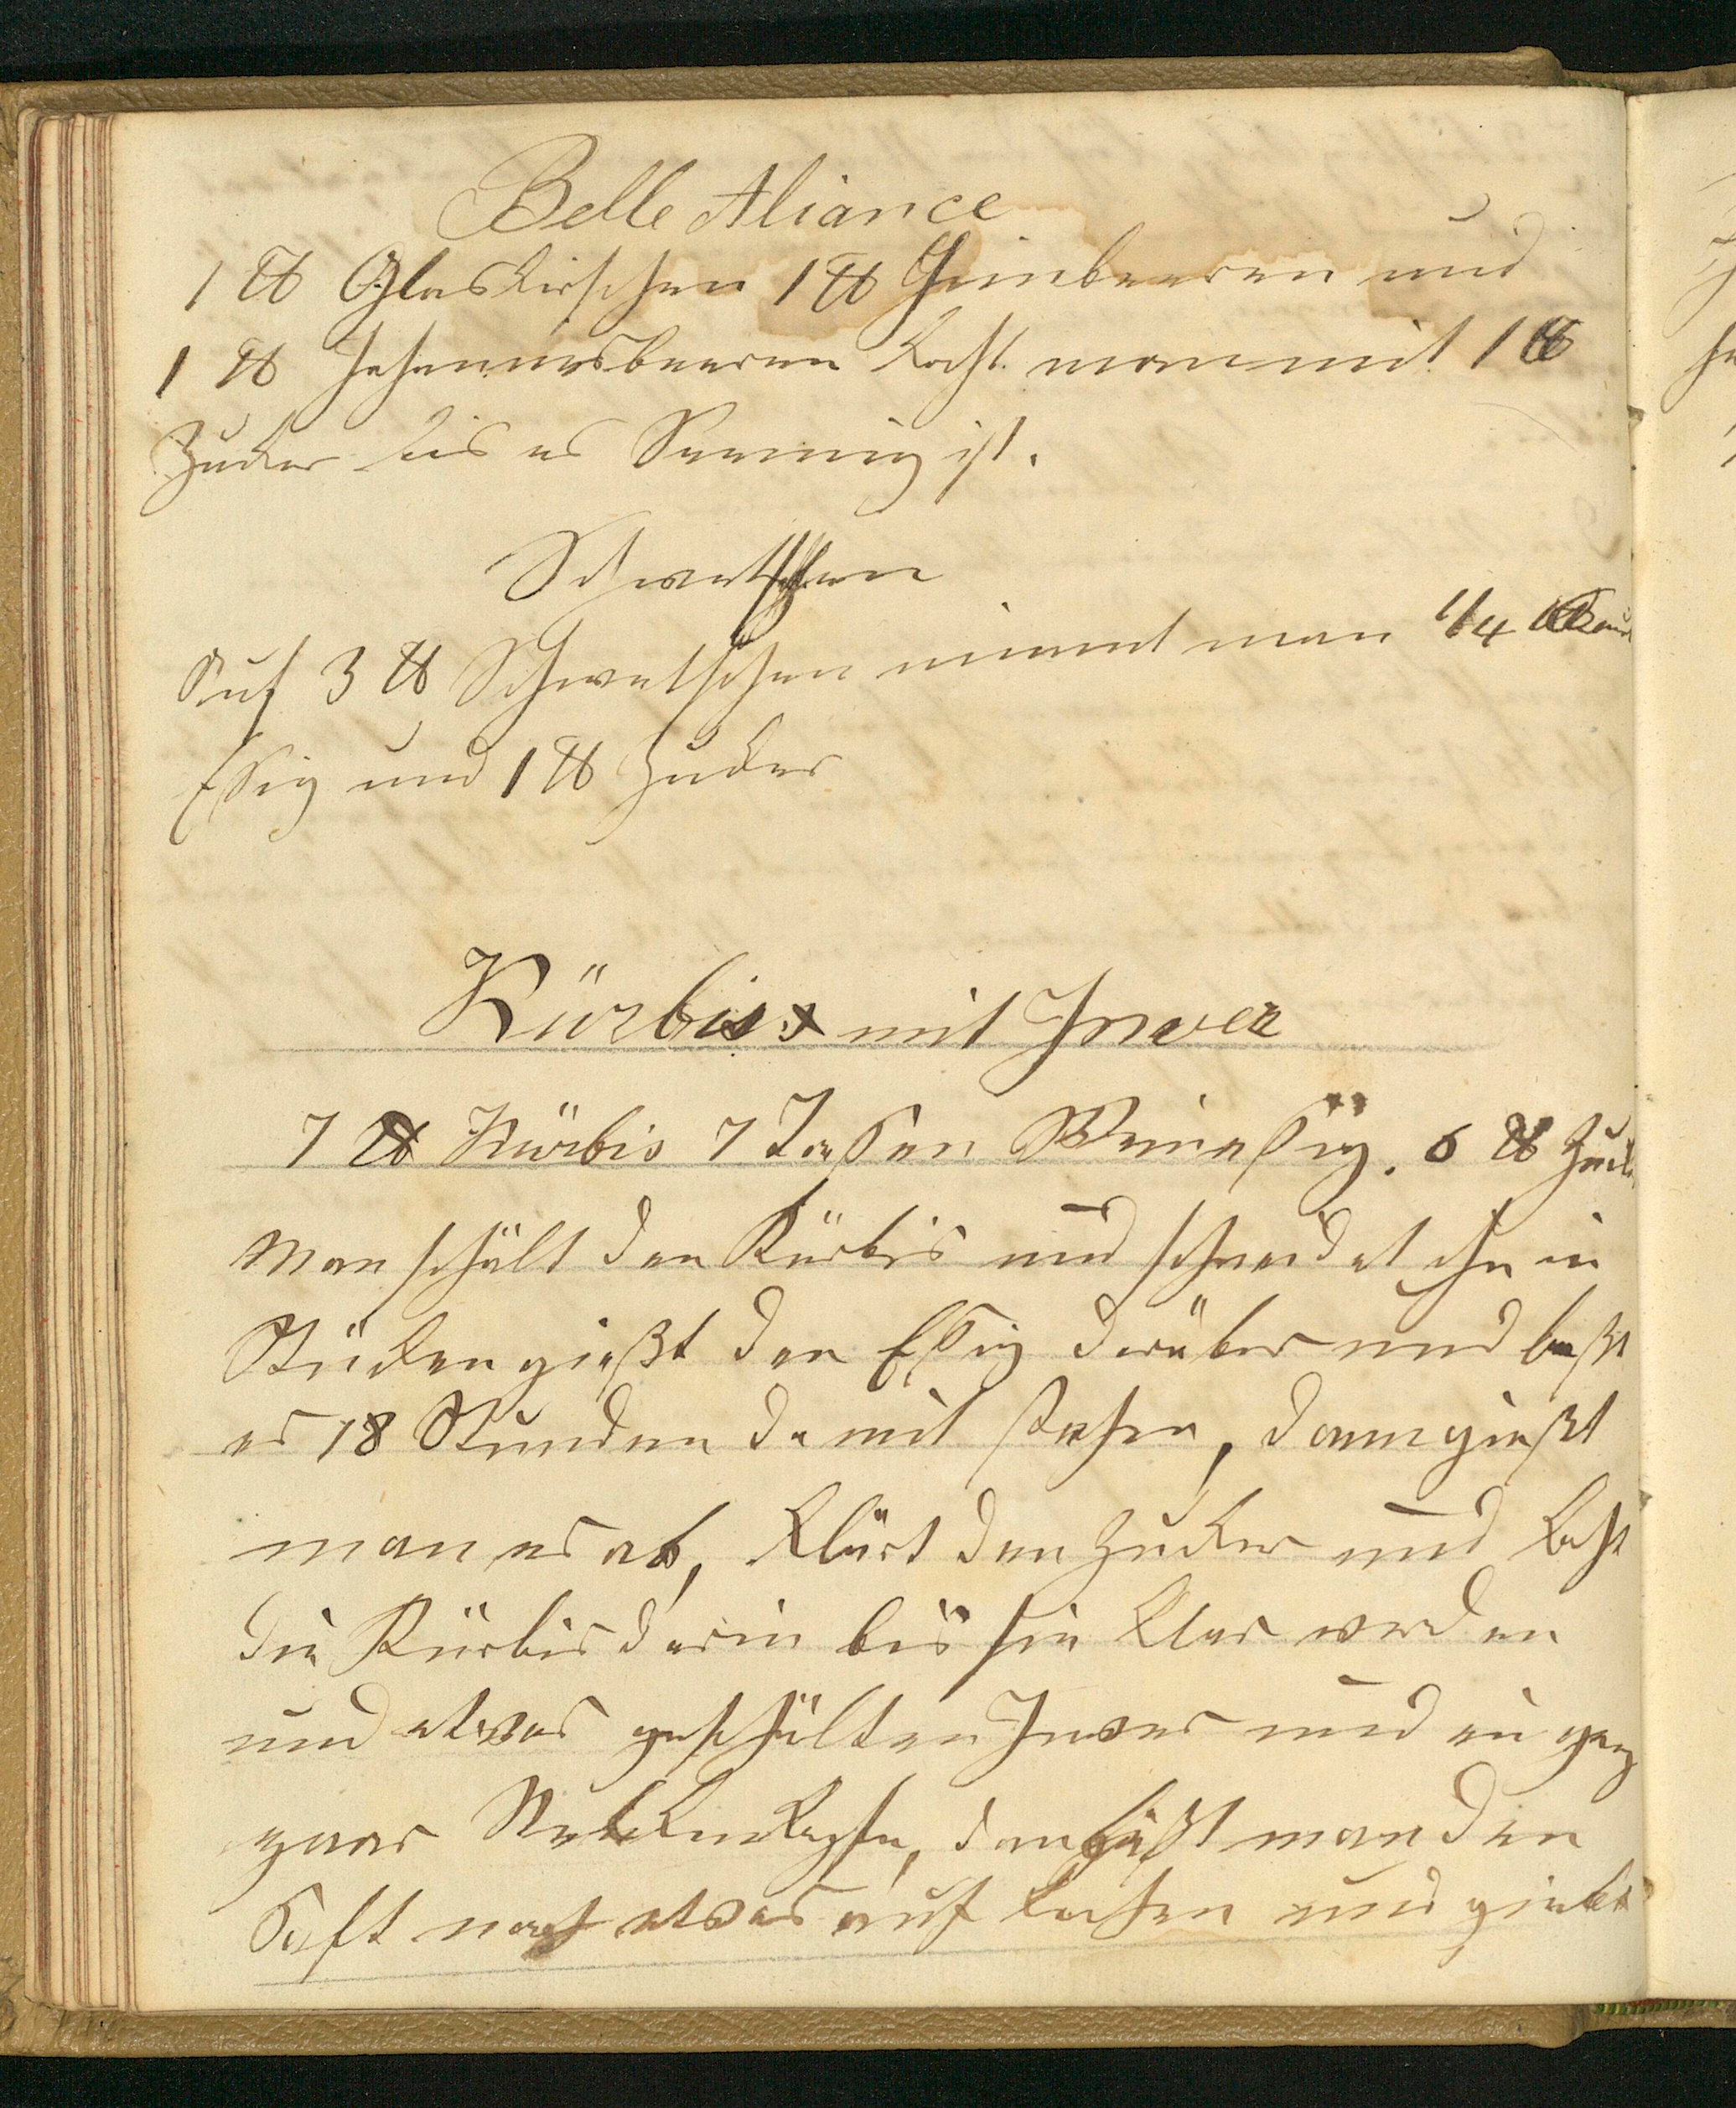 Belle Aliance
1 ℔ Glaskirschen 1 ℔ Himbeeren und
1 ℔ Johannisbeeren kocht man mit 1 ℔
Zucker bis es Seemig ist.
Schwetschen
Auf 3 ℔ Schwetschen nimmt man 1/4
Essig und 1 ℔ Zucker
Kürbiss mit Inver
7 ℔ Kürbis 7 Tassen Weinessig. 6 ℔ Zuck
Man schält den Kürbis und schneidet ihn in
Stücken gießt den Essig darüber und laßt
es 18 Stunden damit stehen, dann gießt
man es ab, klärt den Zucker und kocht
die Kürbis darin bis sie klar werden
und etwas geschälten Inver und ein
paar Nelkenköpfe, dan läßt man den
Saft noch etwas auf kochen und giebt